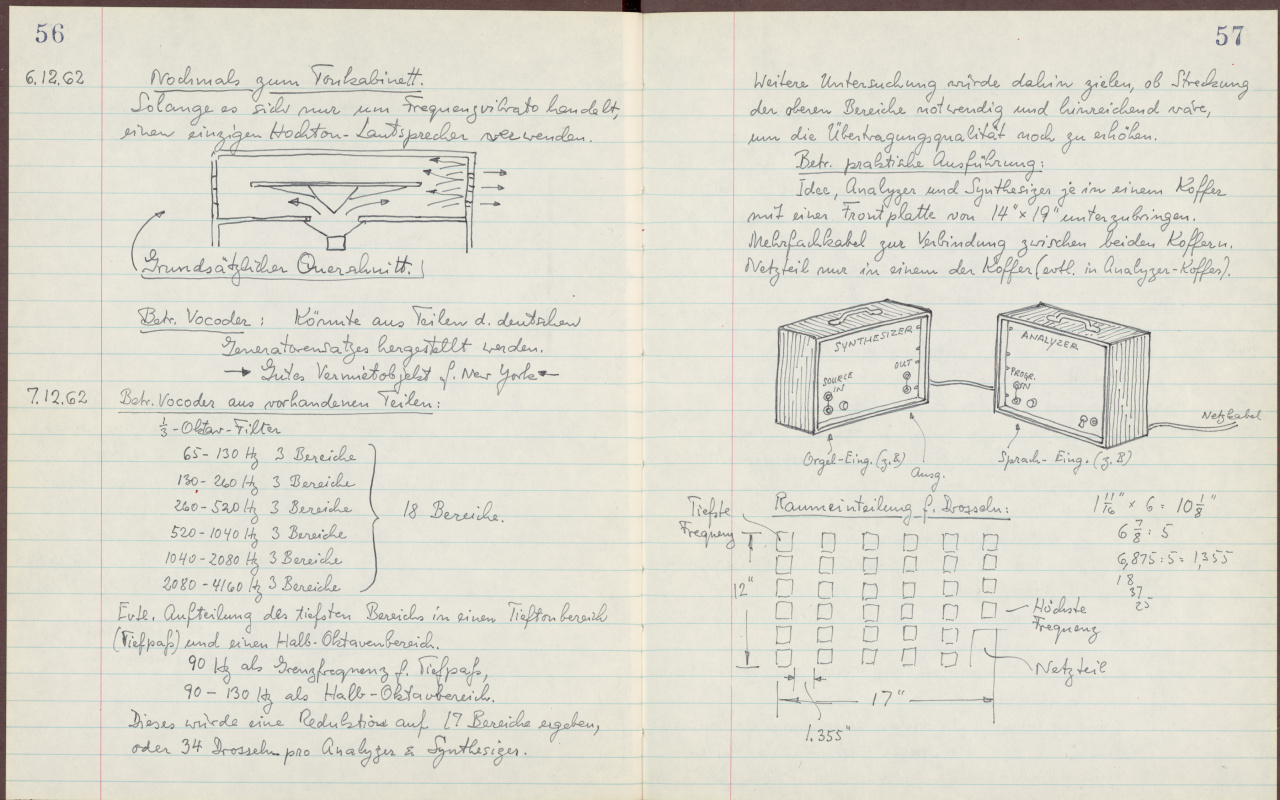 56
6.12.62 Nochmals zum Tonkabinett.
Solange es sich nur um Frequenzvibrato handelt,
einen einzigen Hochton-Lautsprecher verwenden.
Grundsätzlicher Querschnitt.
Betr. Vocoder: Könnte aus Teilen d. deutschen
Generatorensatzes hergestellt werden.
→ Gutes Vermietobjekt f. New York ←
7.12.62 Betr. Vocoder aus vorhandenen Teilen:
1/3-Oktav-Filter
65-130 Hz 3 Bereiche
130-260 Hz 3 Bereiche
260-520 Hz 3 Bereiche
520-1040 Hz 3 Bereiche
1040-2080 Hz 3 Bereiche
2080-4160 Hz 3 Bereiche
18 Bereiche.
Evtl. Aufteilung des tiefsten Bereichs in einen Tieftonbereich
(Tiefpaß) und einen Halb-Oktavenbereich.
90 Hz als Grenzfrequenz f. Tiefpaß,
90 - 130 Hz als Halb-Oktavbereich.
Dieses würde eine Reduktion auf 17 Bereiche ergeben,
oder 34 Drosseln pro Analyzer & Synthesizer.
57
Weitere Untersuchung würde dahin zielen, ob Streckung
der oberen Bereiche notwendig und hinreichend wäre,
um die Übertragungsqualität noch zu erhöhen.
Betr. praktische Ausführung:
Idee, Analyzer und Synthesizer je in einem Koffer
mit einer Frontplatte von 14" x 19" unterzubringen.
Mehrfachkabel zur Verbindung zwischen beiden Koffern.
Netzteil nur in einem der Koffer (evtl. in Analyzer-Koffer).
SYNTHESIZER
OUT
SOURCE
IN
ANALYZER
PROGR.
IN
Netzkabel
Orgel-Eing. (z.B)
Ausg.
Sprach-Eing. (z.B)
Raumeinteilung f. Drosseln:
Tiefste
Frequenz
12"
Höchste
Frequenz
Netzteil
17"
1.355"
1 11/16" x 6 = 10 1/8"
6 7/8 : 5
6,875 : 5 = 1,355
18
37
25